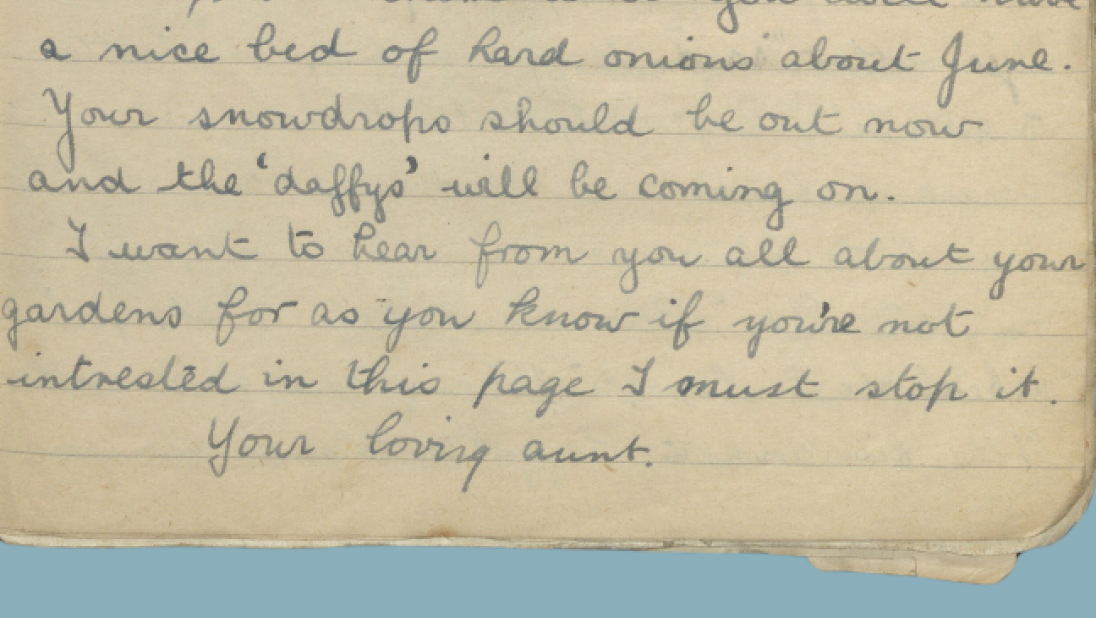 you will have
a nice bed of hard onions about June.
Your snowdrops should be out now
and the 'daffys' will be coming on.
I want to hear from you all about your
gardens for as you know if you're not
intrested in this page I must stop it.
Your loving aunt.